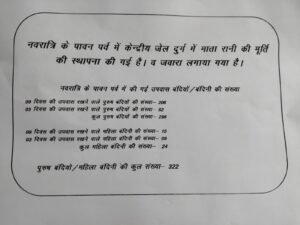 नवरात्रि के पावन पर्व में केन्द्रीय जेल दुर्ग में माता रानी की मूर्ति
की स्थापना की गई है। व जवारा लगाया गया है।
नवरात्रि के पावन पर्व में की गई उपवास बंदियों/बंदिनी की संख्या
09 दिवस की उपवास रखने वाले पुरूष बंदियों की संख्या- 206
03 दिवस की उपवास रखने वाले पुरूष बंदियों की संख्या- 92
कुल पुरूष बंदियों की संख्या- 298
09 दिवस की उपवास रखने वाले महिला बंदिनी की संख्या- 15
03 दिवस की उपवास रखने वाले महिला बंदिनी की संख्या- 09
कुल महिला बंदिनी की संख्या- 24
पुरूष बंदियो/महिला बंदिनी की कुल संख्या- 322